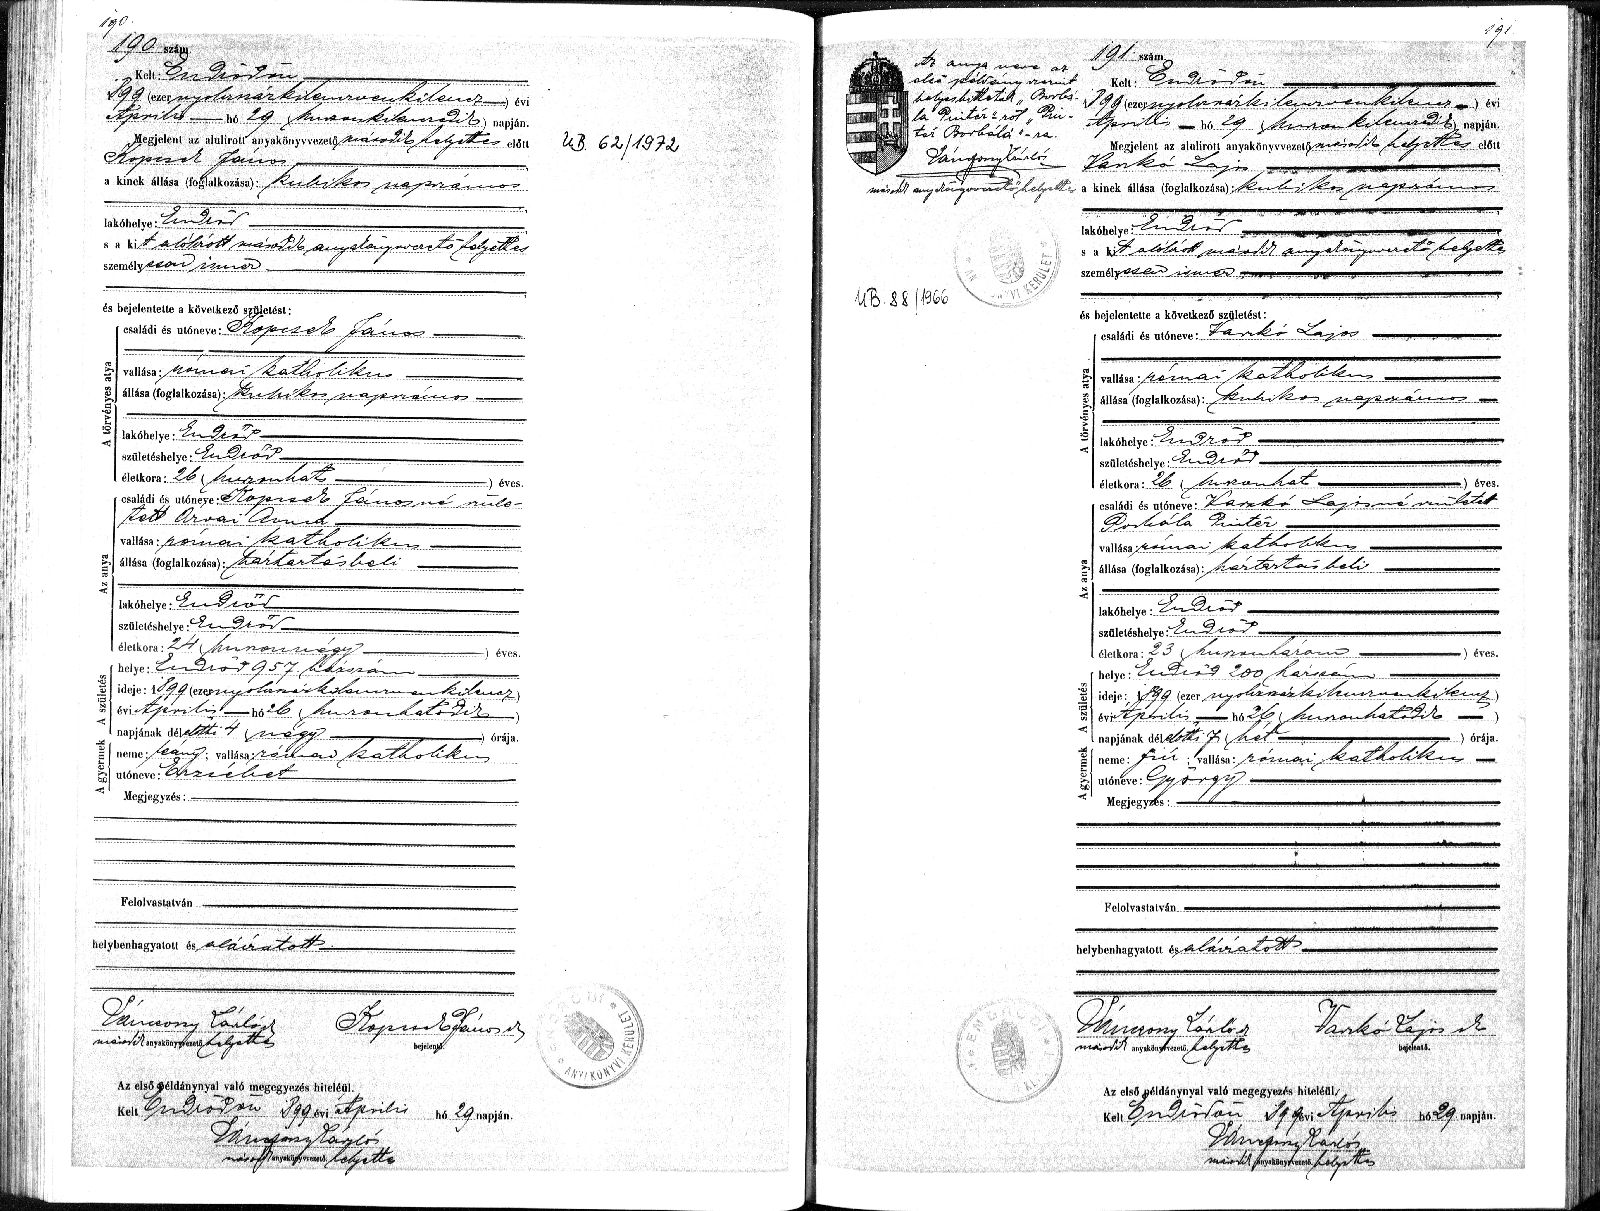 190.
190 szám
Kelt: Endrődön
899 (ezer nyolczszázkilenczvenkilencz) évi
Április hó 29 (huszonkilenczedik) napján.
Megjelent az alulirott anyakönyvvezető második helyettes előtt
Kopcsek János
a kinek állása (foglalkozása): kubikos napszámos
lakóhelye: Endrőd
s a kit alólirott második anyakönyvvezető helyettes
személyesen ismer
és bejelentette a következő születést:
A törvényes atya
családi és utóneve: Kopcsek János
vallása: római katholikus
állása (foglalkozása): kubikos napszámos
lakóhelye: Endrőd
születéshelye: Endrőd
életkora: 26 (huszonhat) éves.
Az anya
családi és utóneve: Kopcsek Jánosné szüle-
tett Arvai Anna
vallása: római katholikus
állása (foglalkozása): háztartásbeli
lakóhelye: Endrőd
születéshelye: Endrőd
életkora: 24 (huszonnégy) éves.
A születés
helye: Endrőd 957. házszám
ideje: 1899 (ezer nyolczszázkilenczvenkilencz)
évi Április hó 26 (huszonhatodik)
napjának délelőtti 4 (négy) órája.
A gyermek
neme: leány; vallása: római katholikus
utóneve: Erzsébet
Megjegyzés:
Felolvastatván
helybenhagyatott és aláiratott
Kopcsek János
második anyakönyvvezető. helyettes
bejelentő.
Az első példánynyal való megegyezés hiteléül.
Kelt Endrődön 899 évi Április hó 29 napján.
második anyakönyvvezető. helyettes
UB 62/1972
ANYAKÖNYVI KERÜLET
191
Az anya neve az
első példány szerint
helyesbittetett „Borbá-
la Pintér"-ről „Pin-
tér Borbála"-ra.
második anyakönyvvezető helyettes
VI KERÜLET
UB. 88/1966
191 szám
Kelt: Endrődön
899 (ezer nyolczszázkilenczvenkilencz) évi
Április hó 29 (huszonkilenczedik) napján.
Megjelent az alulirott anyakönyvvezető második helyettes előtt
Vaskó Lajos
a kinek állása (foglalkozása): kubikos napszámos
lakóhelye: Endrőd
s a kit alólirott második anyakönyvvezető helyettes
személyesen ismer
és bejelentette a következő születést:
A törvényes atya
családi és utóneve: Vaskó Lajos
vallása: római katholikus
állása (foglalkozása): kubikos napszámos
lakóhelye: Endrőd
születéshelye: Endrőd
életkora: 26 (huszonhat) éves.
Az anya
családi és utóneve: Vaskó Lajosné született
Borbála Pintér
vallása: római katholikus
állása (foglalkozása): háztartásbeli
lakóhelye: Endrőd
születéshelye: Endrőd
életkora: 23 (huszonhárom) éves.
A születés
helye: Endrőd 200 házszám
ideje: 899 (ezer nyolczszázkilenczvenkilencz)
évi Április hó 26 (huszonhatodik)
napjának délelőtti 7 (hét) órája.
A gyermek
neme: fiú; vallása: római katholikus
utóneve: György
Megjegyzés:
Felolvastatván
helybenhagyatott és aláiratott
Vaskó Lajos
második anyakönyvvezető. helyettes
bejelentő.
ENDRŐDI
Az első példánynyal való megegyezés hiteléül.
Kelt Endrődön 899 évi Április hó 29 napján.
második anyakönyvvezető. helyettes